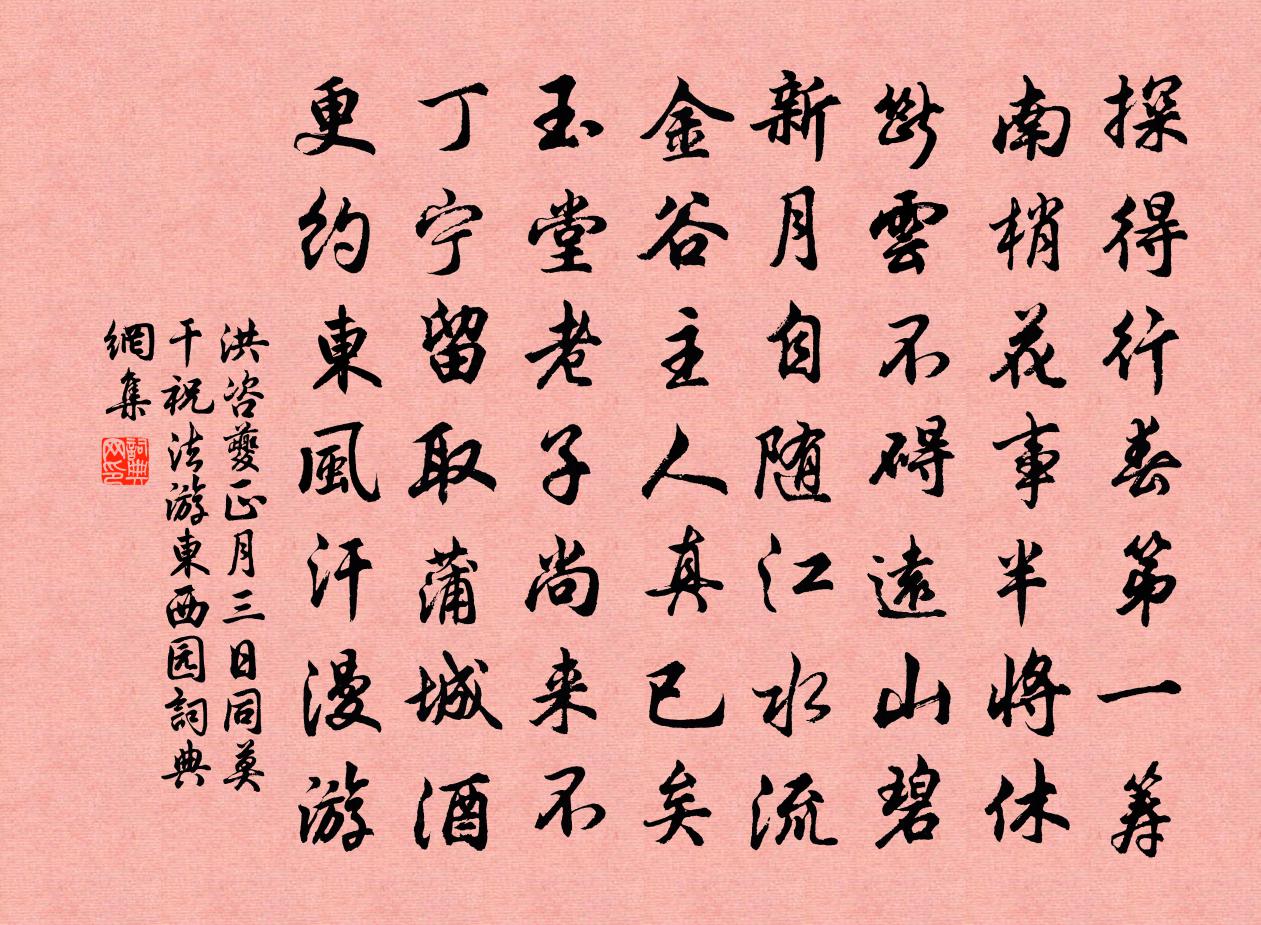 探得行春第一筹
南梢花事半将休
断雲不碍遠山碧
新月自随江水流
金谷主人真已矣
玉堂老子尚来不
丁宁留取蒲城酒
更约東風汗漫游
洪咨夔正月三日同莫
干祝法游東西园詞典
網集
詞典網印